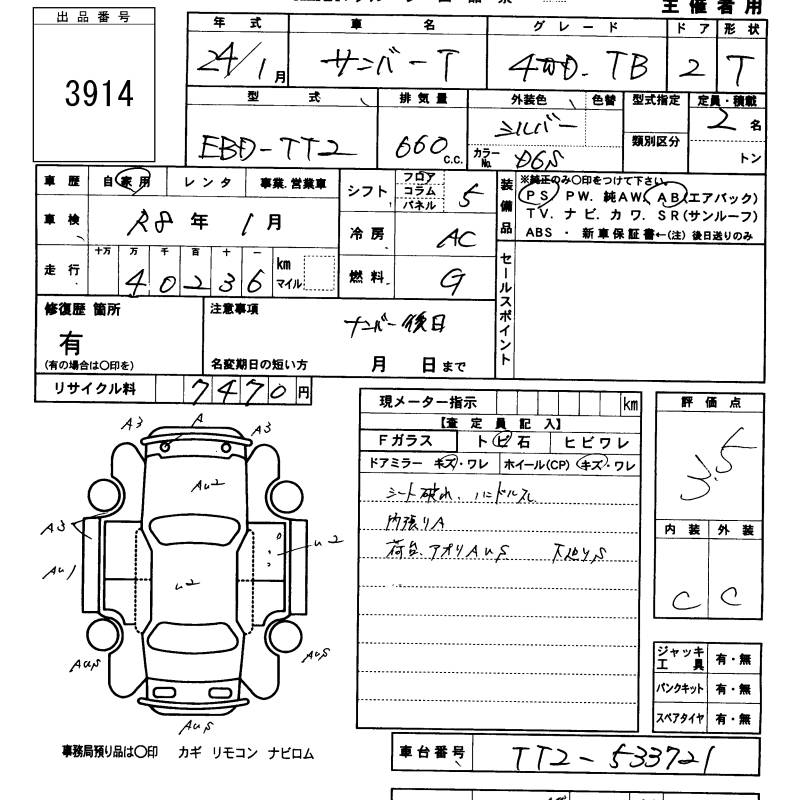 主催者用
出品番号
3914
年式 車名 グレード ドア 形状
24/1月 サンバーT 4WD. TB 2 T
型式 排気量 外装色 色替 型式指定 定員・積載
EBD-TT2 660 c.c. シルバー 類別区分 2名
カラーNo. D6S トン
車歴 自家用 レンタ 事業.営業車
車検 R8年 1月
走行 十万 万 千 百 十 一
40236 km マイル
シフト フロア コラム パネル 5
冷房 AC
燃料 G
装備品 ※純正のみ〇印をつけて下さい。
PS PW. 純AW. AB(エアバック)
TV. ナビ. カワ. SR(サンルーフ)
ABS ・ 新車保証書←(注) 後日送りのみ
セールスポイント
修復歴 箇所
有
(有の場合は〇印を)
注意事項
ナンバー後日
名変期日の短い方 月 日まで
リサイクル料 7470円
現メーター指示 km
【査定員記入】
Fガラス トビ石 ヒビワレ
ドアミラー キズ・ワレ ホイール(CP) キズ・ワレ
シート破れ. ハンドルスレ
内張りA
荷台.アオリAUS 下廻りS
評価点
3.5
内装 外装
C C
ジャッキ工具 有・無
パンクキット 有・無
スペアタイヤ 有・無
A3 A A3
AU2
A3
U2
AU1
U2
AUS AUS
AUS
事務局預り品は〇印 カギ リモコン ナビロム
車台番号 TT2-533721